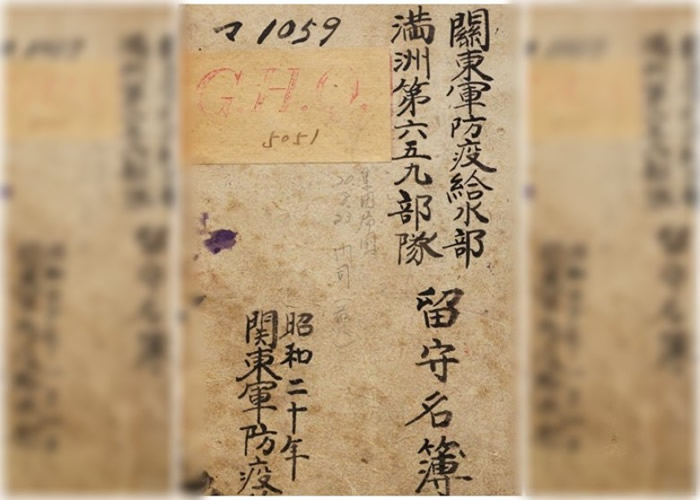 關東軍防疫給水部
満洲第六五九部隊
留守名簿
マ1059
G.H.Q.
5051
昭和二十年
関東軍防疫